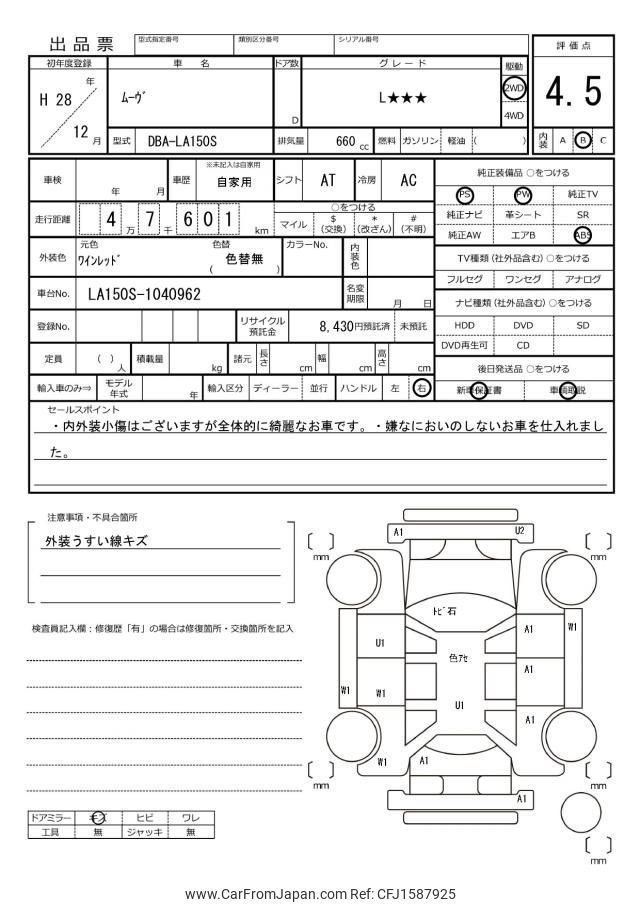 出品票
型式指定番号 類別区分番号 シリアル番号
評価点
4.5
内装 A B C
初年度登録 車名 ドア数 グレード 駆動
H 28 年 12 月
ﾑｰｳﾞ
D
L★★★
2WD
4WD
型式 DBA-LA150S 排気量 660 cc 燃料 ガソリン 軽油 ( )
車検 年 月 車歴 ※未記入は自家用 自家用 シフト AT 冷房 AC
走行距離 4 万 7 千 6 0 1 km
○をつける
マイル $(交換) *(改ざん) #(不明)
外装色 元色 ﾜｲﾝﾚｯﾄﾞ 色替 ( 色替無 ) カラーNo. 内装色
車台No. LA150S-1040962 名変期限 月 日
登録No. リサイクル預託金 8,430円預託済 未預託
定員 ( ) 人 積載量 kg 諸元 長さ cm 幅 cm 高さ cm
輸入車のみ⇒ モデル年式 年 輸入区分 ディーラー 並行 ハンドル 左 右
純正装備品 ○をつける
PS PW 純正TV
純正ナビ 革シート SR
純正AW エアB ABS
TV種類(社外品含む) ○をつける
フルセグ ワンセグ アナログ
ナビ種類(社外品含む) ○をつける
HDD DVD SD
DVD再生可 CD
後日発送品 ○をつける
新車保証書 車輌取説
セールスポイント
・内外装小傷はございますが全体的に綺麗なお車です。・嫌なにおいのしないお車を仕入れまし
た。
注意事項・不具合箇所
外装うすい線キズ
検査員記入欄：修復歴「有」の場合は修復箇所・交換箇所を記入
ドアミラー キズ ヒビ ワレ
工具 無 ジャッキ 無
A1 U2
mm mm
ﾄﾋﾞ石
U1 A1 W1
色ｱｾ
A1
W1 W1
U1
A1
W1 A1
mm mm
A1
mm
www.CarFromJapan.com Ref: CFJ1587925